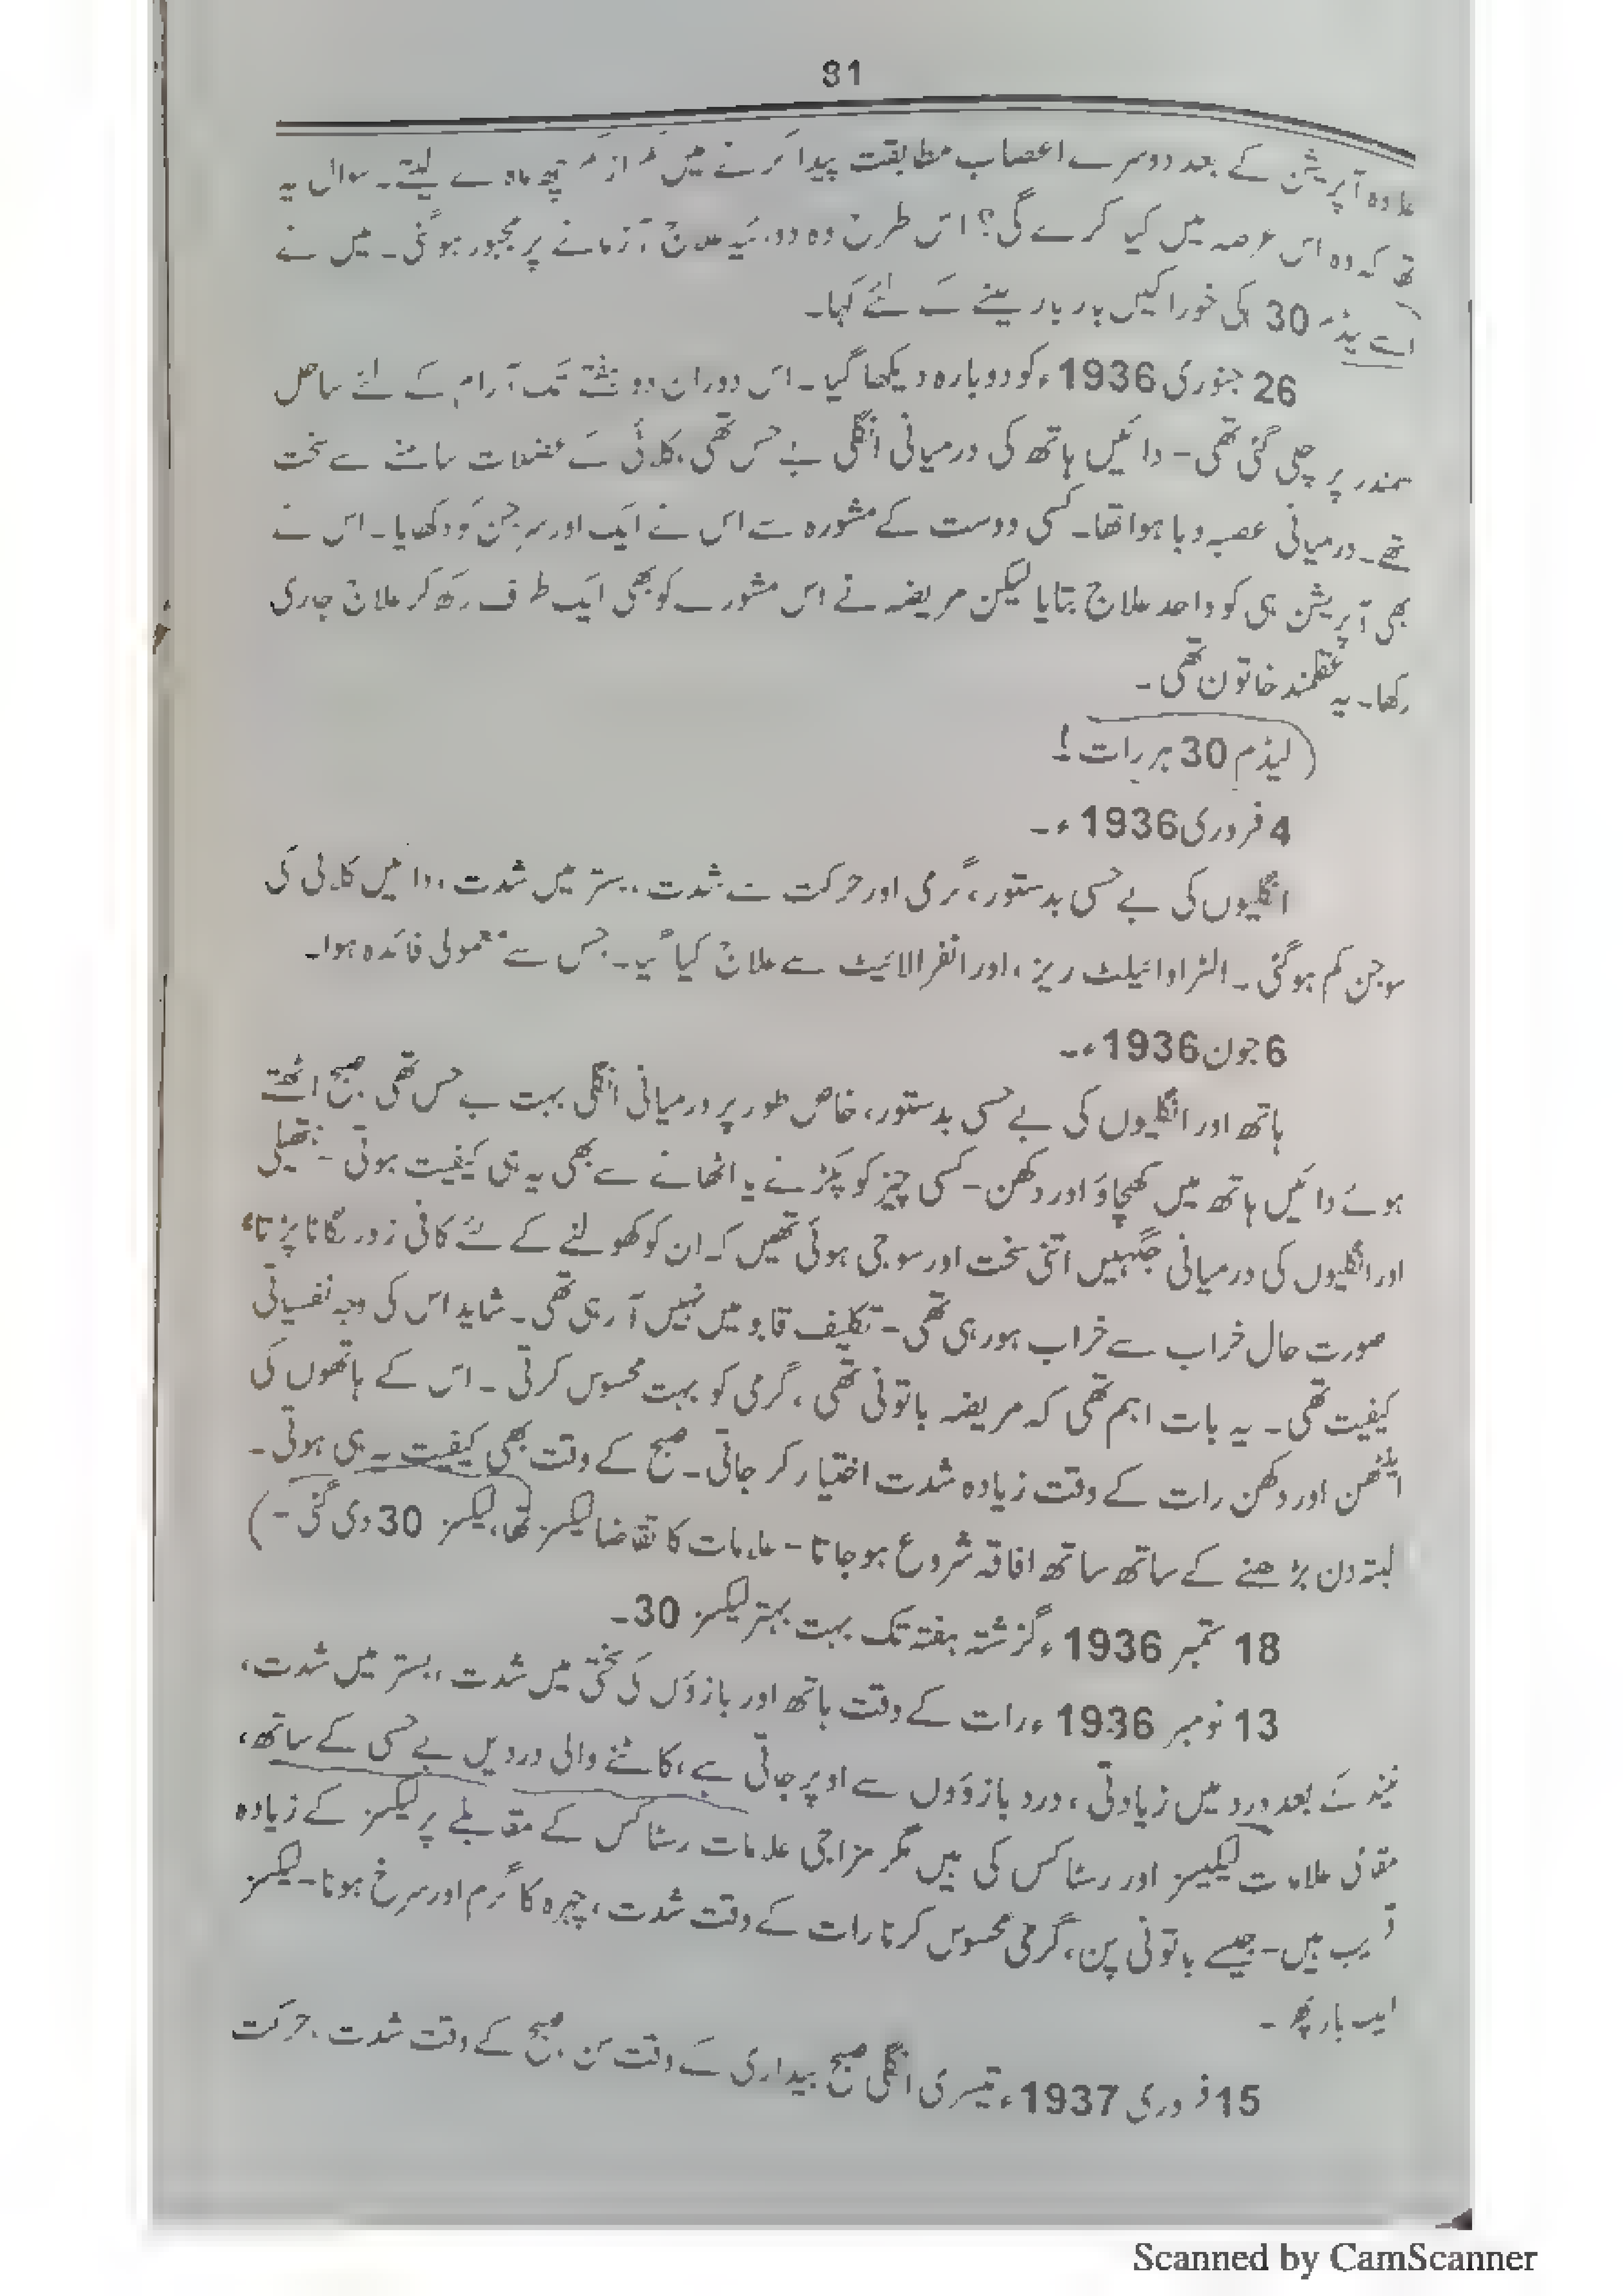 81
علاوہ آپریشن کے بعد دوسرے اعصاب مطابقت پیدا کرنے میں کم از کم چھ ماہ لے لیتے۔ سوال یہ
تھا کہ وہ اس عرصہ میں کیا کرے گی؟ اس طرح وہ دوبارہ علاج آزمانے پر مجبور ہو گئی۔ میں نے
اسے لیڈم 30 کی خوراکیں بار بار لینے کے لئے کہا۔
26 جنوری 1936ء کو دوبارہ دیکھا گیا۔ اس دوران دو ہفتے تک آرام کے لئے ساحل
سمندر پر چلی گئی تھی۔ دائیں ہاتھ کی درمیانی انگلی بے حس تھی، کلائی کے عضلات سامنے سے سخت
تھے۔ درمیانی عصبہ دبا ہوا تھا۔ کسی دوست کے مشورہ سے اس نے ایک اور سرجن کو دکھایا۔ اس نے
بھی آپریشن ہی کو واحد علاج بتایا لیکن مریضہ نے اس مشورے کو بھی ایک طرف رکھ کر علاج جاری
رکھا۔ یہ عقلمند خاتون تھی۔
(لیڈم 30 ہر رات!
4 فروری 1936ء۔
انگلیوں کی بے حسی بدستور، گرمی اور حرکت سے شدت، بستر میں شدت، دائیں کلائی کی
سوجن کم ہو گئی۔ الٹراوائیلٹ ریز، اور انفرالائیٹ سے علاج کیا گیا۔ جس سے معمولی فائدہ ہوا۔
6 جون 1936ء۔
ہاتھ اور انگلیوں کی بے حسی بدستور، خاص طور پر درمیانی انگلی بہت بے حس تھی صبح اٹھتے
ہوئے دائیں ہاتھ میں کھچاؤ اور دکھن۔ کسی چیز کو پکڑنے یا اٹھانے سے بھی یہ ہی کیفیت ہوتی۔ ہتھیلی
اور انگلیوں کی درمیانی جگہیں اتنی سخت اور سوجی ہوئی تھیں کہ ان کو کھولنے کے لئے کافی زور لگانا پڑتا،
صورت حال خراب سے خراب ہو رہی تھی۔ تکلیف قابو میں نہیں آ رہی تھی۔ شاید اس کی وجہ نفسیاتی
کیفیت تھی۔ یہ بات اہم تھی کہ مریضہ باتونی تھی، گرمی کو بہت محسوس کرتی۔ اس کے ہاتھوں کی
اینٹھن اور دکھن رات کے وقت زیادہ شدت اختیار کر جاتی۔ صبح کے وقت بھی کیفیت یہ ہی ہوتی۔
البتہ دن بڑھنے کے ساتھ ساتھ افاقہ شروع ہو جاتا۔ علامات کا تقاضا لیکسز تھی، لیکسز 30 دی گئی۔)
18 ستمبر 1936ء گزشتہ ہفتہ تک بہت بہتر لیکسز 30۔
13 نومبر 1936ء رات کے وقت ہاتھ اور بازوؤں کی سختی میں شدت، بستر میں شدت،
نیند کے بعد درد میں زیادتی، درد بازوؤں سے اوپر جاتی ہے، کاٹنے والی دردیں بے حسی کے ساتھ،
مقامی علامات لیکیسز اور رسٹاکس کی ہیں مگر مزاجی علامات رسٹاکس کے مقابلے پر لیکسز کے زیادہ
قریب ہیں۔ جیسے باتونی پن، گرمی محسوس کرنا رات کے وقت شدت، چہرہ کا گرم اور سرخ ہونا۔ لیکسز
ایک بار پھر۔
15 فروری 1937ء، تیسری انگلی صبح بیداری کے وقت سن، صبح کے وقت شدت، حرکت
Scanned by CamScanner